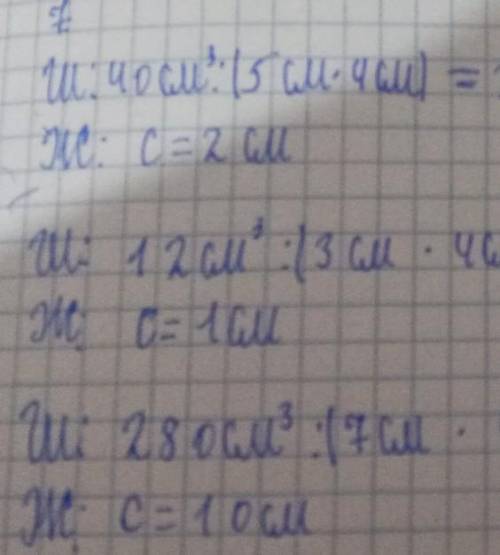 7
Ш: 40см³:(5см·4см) =
Ж: c=2см
Ш: 12см³:(3см · 4с
Ж: c=1см
Ш: 280см³:(7см ·
Ж: c=10см